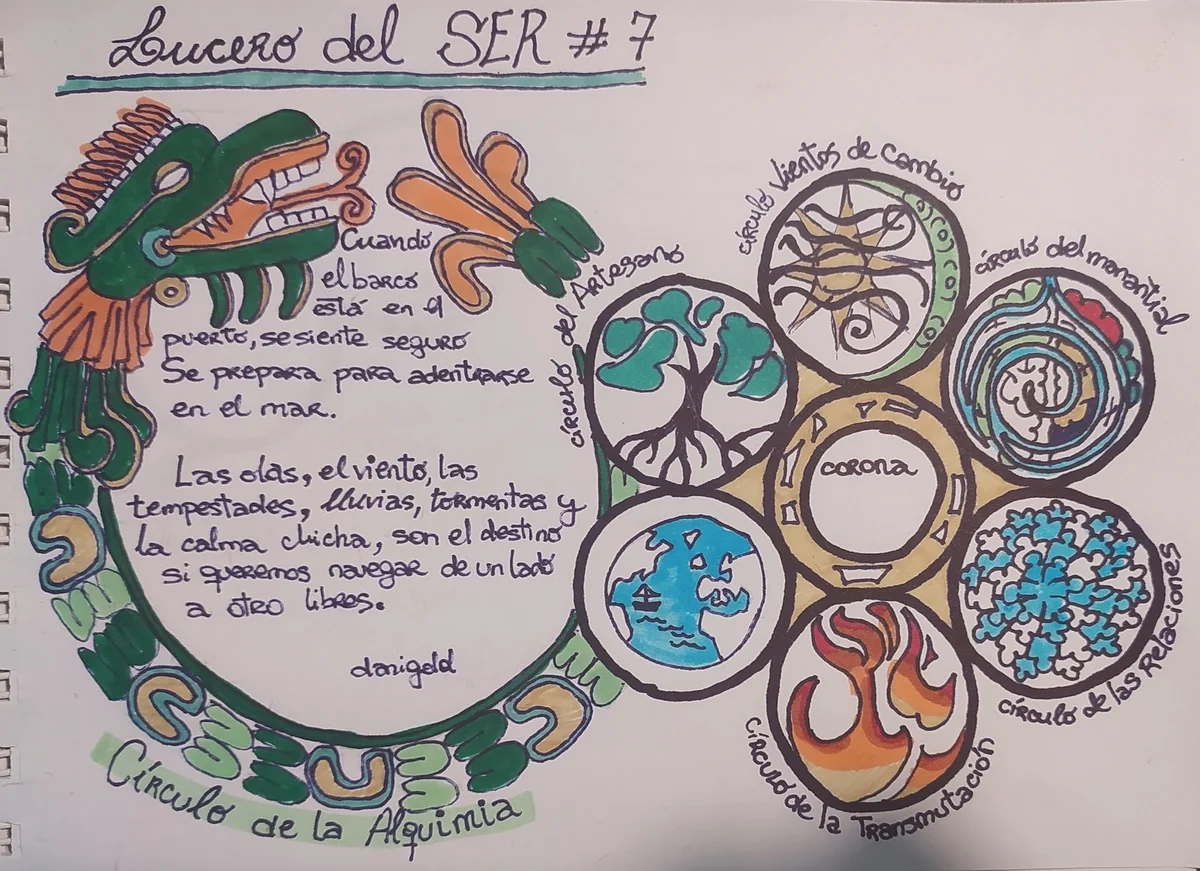 Lucero del SER # 7
Cuando
el barco
está en el
puerto, se siente seguro
Se prepara para adentrarse
en el mar.
Las olas, el viento, las
tempestades, lluvias, tormentas y
la calma chicha, son el destino
si queremos navegar de un lado
a otro libres.
danigold
Círculo de la Alquimia
círculo del Artesano
círculo Vientos de Cambio
círculo del manantial
corona
círculo de las Relaciones
círculo de la Transmutación